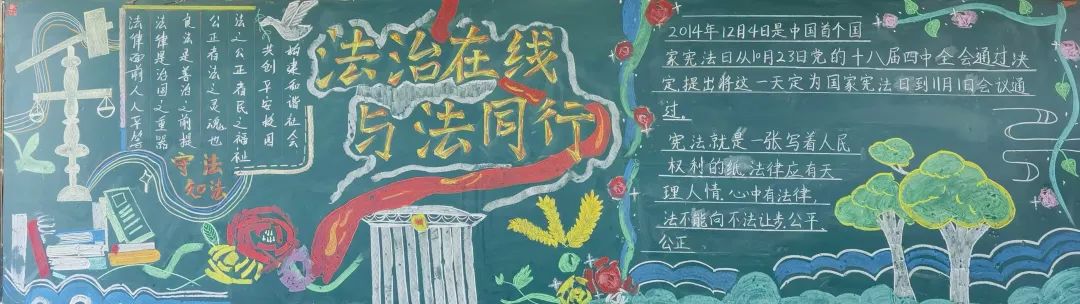 构建和谐社会
共创平安校园
法之公正者民之福祉
公正者法之灵魂也
良法是善治之前提
法律是治国之重器
法律面前人人平等
守法
知法
法治在线
与法同行
2014年12月4日是中国首个国
家宪法日从10月23日党的十八届四中全会通过决
定提出将这一天定为国家宪法日到11月1日会议通
过。
宪法就是一张写着人民
权利的纸,法律应有天
理人情,心中有法律,
法不能向不法让步,公平
公正